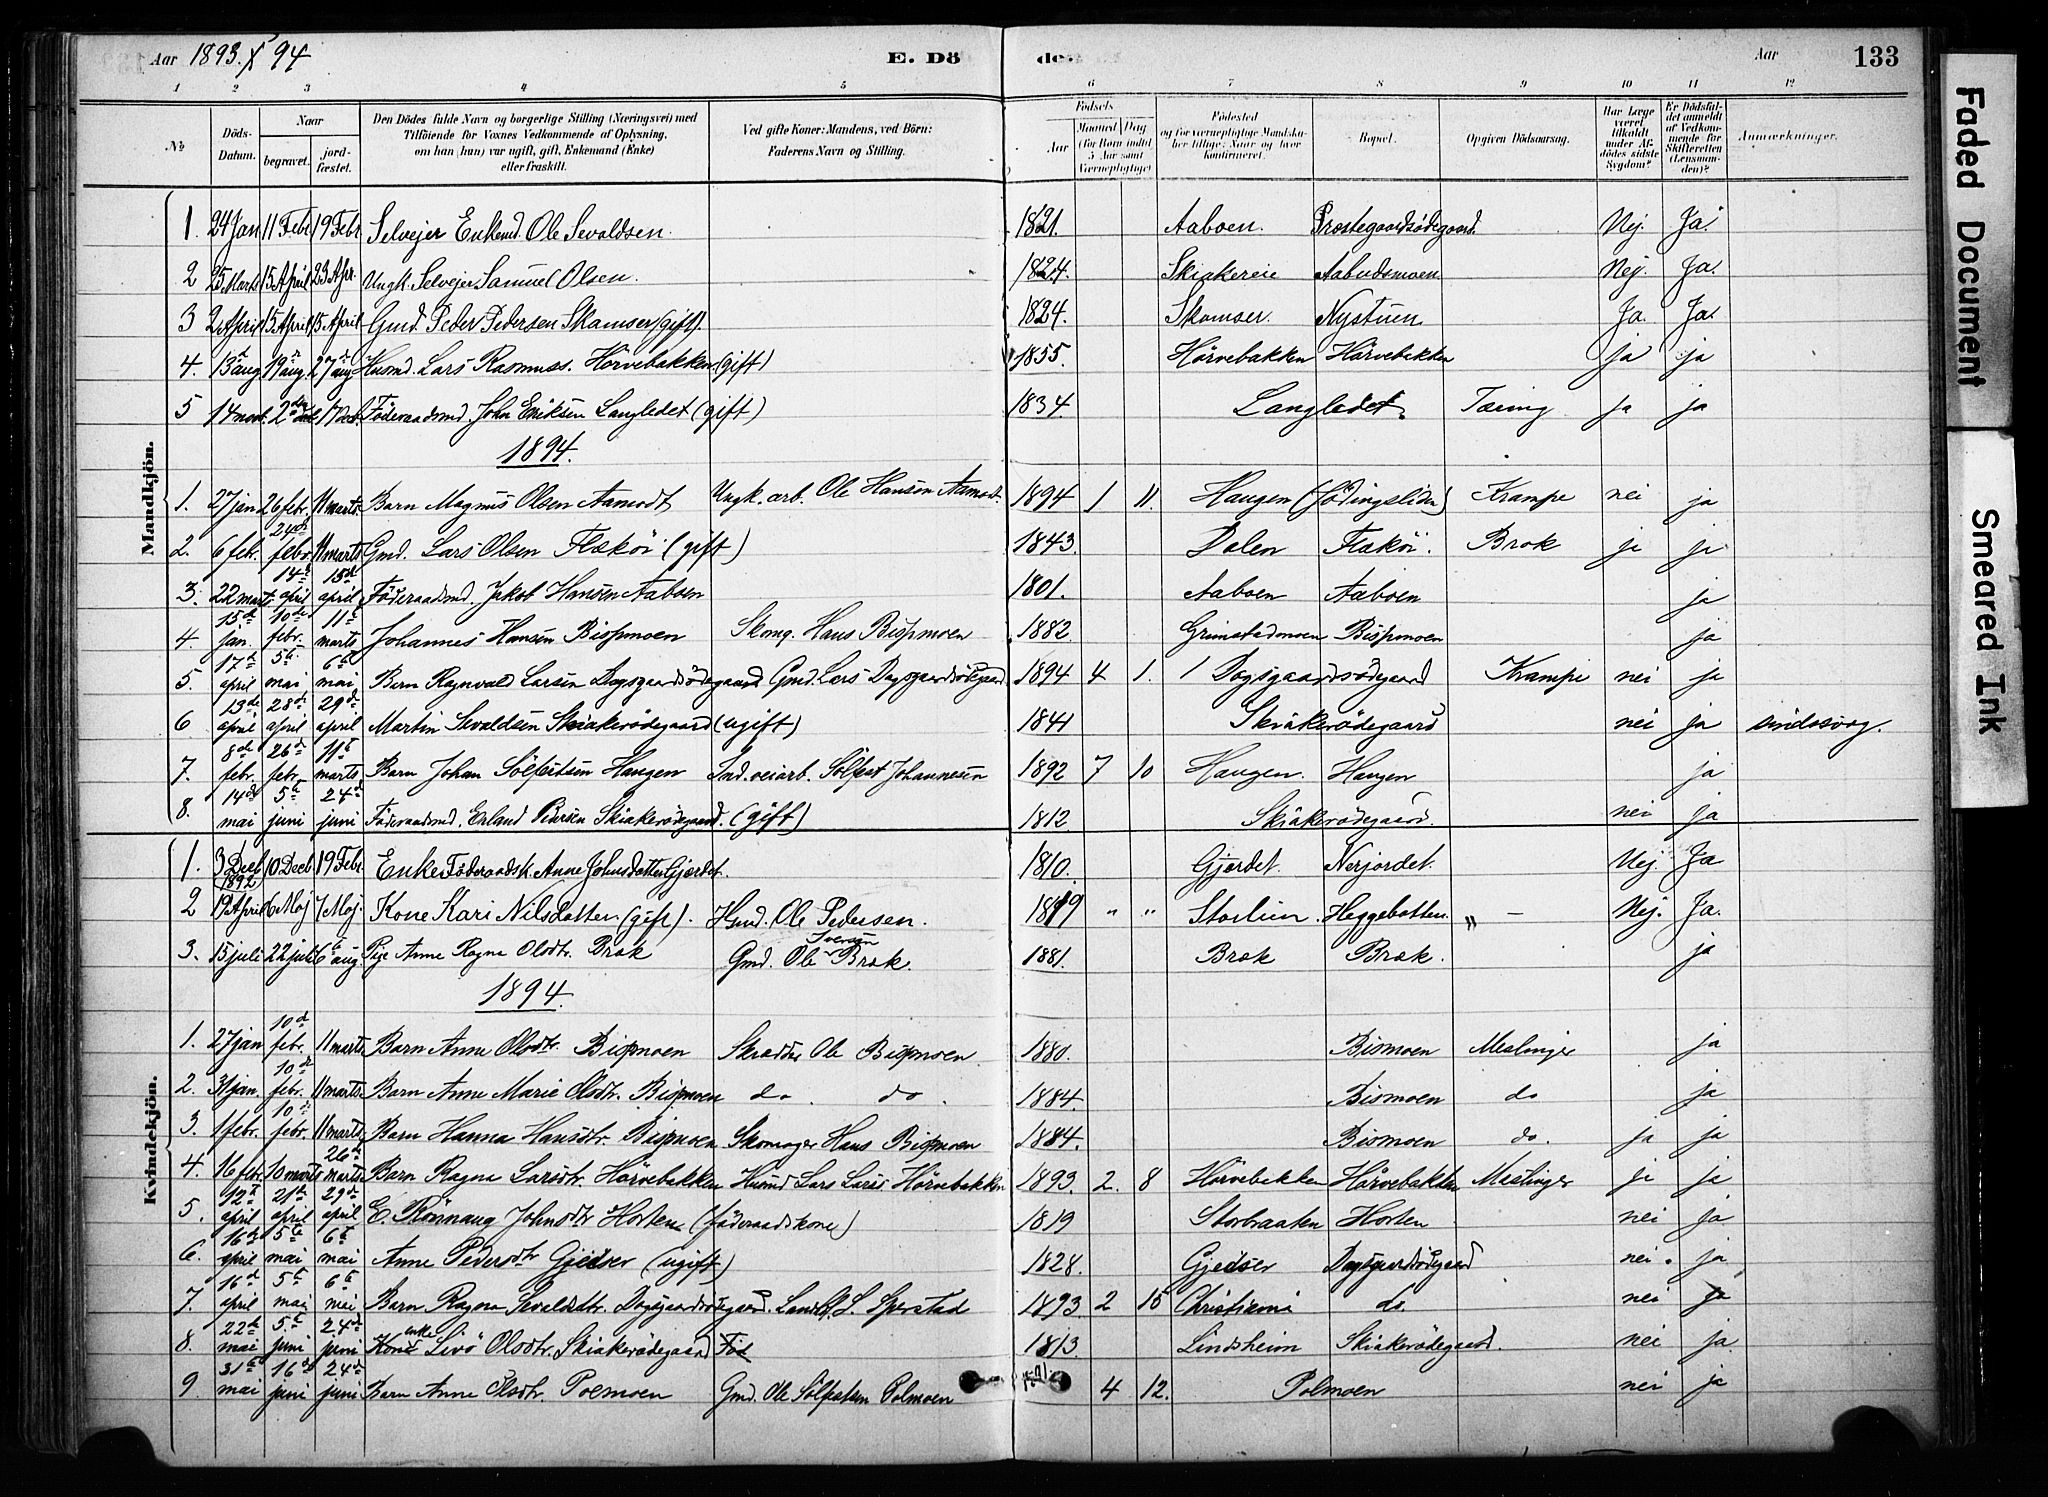 Aar 1893 & 94 E. Döde. Aar 133
1 2 3 4 5 6 7 8 9 10 11 12
№ Döds-Datum. Naar begravet. jordfæstet. Den Dödes fulde Navn og borgerlige Stilling (Næringsvei) med Tilföiende for Voxnes Vedkommende af Oplysning, om han (hun) var ugift, gift, Enkemand (Enke) eller fraskilt. Ved gifte Koner: Mandens, ved Börn: Faderens Navn og Stilling. Födsels Aar Maaned Dag (for Börn indtil 5 Aar samt Værnepligtige) Födested og for værnepligtige Mandskaber tillige: Naar og hvor konfirmeret. Bopæl. Opgiven Dödsaarsag. Har Læge været tilkaldt under Afdödes sidste Sygdom? Er Dödsfaldet anmeldt af Vedkommende for Skifteretten (Lensmanden)? Anmærkninger.
Mandkjön.
1. 24 Jan 11 Febr 19 Febr Selvejer Enkemd. Ole Sevaldsen. 1821. Aaboen. Prestegaardsødegaard. Nej. Ja.
2 25 Marts 15 April 23 Apr. Ungk. Selvejer Samuel Olsen. 1824. Skiakereie Aabudsmoen Nej. Ja.
3 2 April 15 April 15 April Gmd. Peder Pedersen Skamser (gift). 1824. Skamser. Nystuen Ja. Ja.
4. 13 aug 19 aug. 27 aug Husmd. Lars Rasmuss. Hörvebakken (gift) 1855. Hörvebakken Hörvebakken ja ja
5 14 novb. 2den decb 17 Decb. Föderaadsmd. John Eriksen Langledet (gift) 1834 Langledet. Tæring ja ja
1894.
1. 27 jan 26 febr. 11 marts. Barn Magnus Olsen Aamodt Ungk. arb. Ole Hanson Aamodt. 1894 1 11. Haugen (Jødingslien) Krampe nei ja
2. 6 febr. 24de febr. 11 marts Gmd. Lars Olsen Flækøi (gift) 1843. Dalen Flækøi. Brok ja ja
3. 22 marts 14de april 15de april Föderaadsmd. Jakob Hansen Aaboen 1801. Aaboen Aaboen ja
4. 15de jan. 10de febr. 11te marts Johannes Hansen Bispmoen Skomg. Hans Bispmoen 1882 Grimstadmoen Bispmoen ja
5. 17de april 5te mai 6te mai Barn Ragnvald Larsen Dagsgaardsödegaard Gmd. Lars Dagsgaardsödegaard 1894 4 1. Dagsgaardsødegaard Krampe nei ja
6 13de april 28de april 29de april Martin Sevaldsen Skiakerödegaard (ugift) 1841 Skiakerödegaard nei ja sindssvag.
7. 8de febr. 26de febr. 11te marts Barn Johan Sölfestsen Haugen Ind. veiarb. Sölfest Johannesen 1892 7 10 Haugen. Haugen ja
8. 14de mai 5te juni 24de juni Föderaadsmd. Erland Pedersen Skiakerödegaard. (gift) 1812 Skiakerödegaard. nei ja
Kvindekjön.
1. 3 Decb 1892 10 Decb 19 Febr. Enke Föderaadsk. Anne Johnsdatter Gjerdet. 1810. Gjerdet. Nerjordet. Nej. Ja
2 19 April 6 Maj 7 Maj. Kone Kari Nilsdatter. (gift). Husmd. Ole Pedersen. 1819 " " Storlien. Heggebotten. " – Nej. Ja.
3. 15 juli 22 juli 6te aug. Pige Anne Ragna Olsdtr. Bræk Gmd. Ole Iversen Bræk. 1881. Bræk Bræk. ja
1894.
1. 27 jan 10de febr. 11 marts Barn Anne Olsdtr. Bispmoen Skrædder Ole Bispmoen 1880. Bismoen Meslinger ja
2. 31 jan. 10de febr. 11 marts. Barn Anne Marie Olsdtr. Bispmoen do. do. 1884. Bismoen do ja
3. 1 febr. 10de febr. 11 marts. Barn Hanna Hansdtr. Bispmoen Skomager Hans Bispmoen 1884. Bismoen do. ja ja
4. 16 febr. 10 marts 26de marts Barn Ragna Larsdtr. Hörvebakken Husmd Lars Larss Hörvebakken 1893. 2. 8 Hörvebakken Hörvebakken Meslinger ja ja
5. 12te april 21de april 29de april E. Rönnaug Johnsdtr Horten (föderaadskone) 1819 Storbraaten Horten nei ja
6. 16de april 5te mai 6te mai Anne Pedersdtr Gjedser (ugift) 1828. Gjedser Dagsgaardsödegaard nei. ja
7. 16de april 5te mai 6te mai Barn Ragna Sevaldsdtr. Dagsgaardsödegaard. S. Sperstad 1893 2 15 Christiania do. nei ja
8. 22de mai 5te juni 24de juni Kone enke Livö Olsdtr. Skiakerödegaard Föd 1813. Lindsheim Skiakerödegaard. nei ja
9. 31te mai 16de juni 24de juni Barn Anne Olsdtr. Polmoen Gmd. Ole Sölfestsen Polmoen 4 12. Polmoen nei ja
Faded Document
Smeared Ink